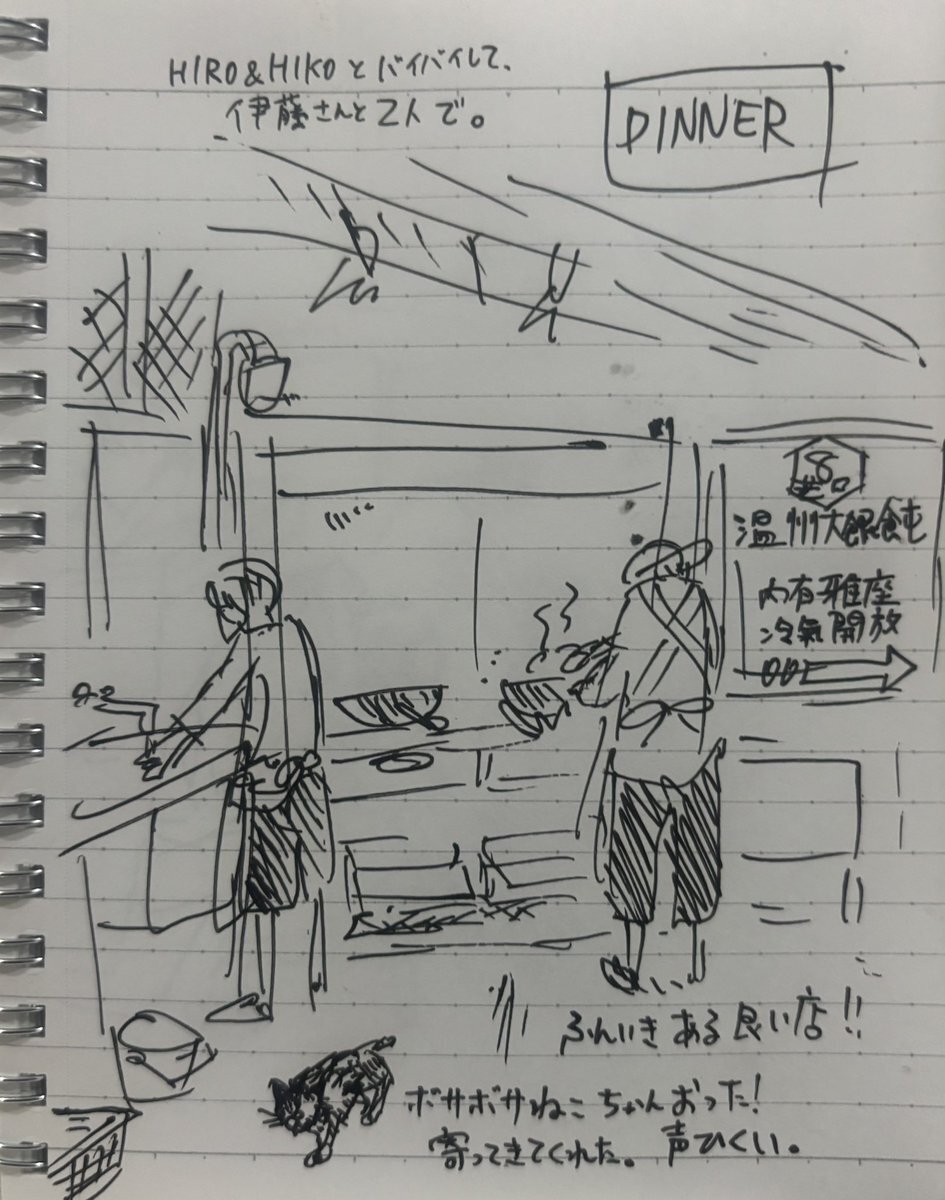 HIRO&HIKOとバイバイして、
伊藤さんと2人で。
DINNER
8
温州大餛飩
內有雅座
冷氣開放
ふんいきある良い店!!
ボサボサねこちゃんおった!
寄ってきてくれた。声ひくい。